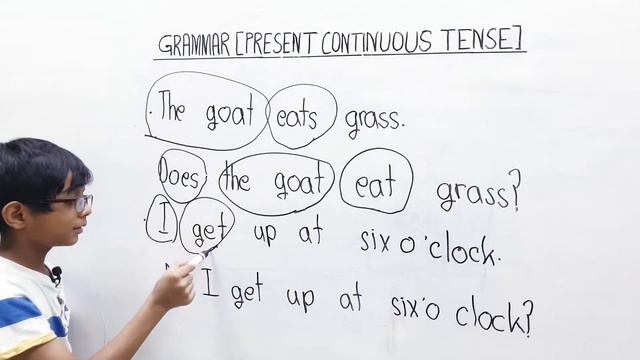 GRAMMAR [PRESENT CONTINUOUS TENSE]
The goat eats grass.
Does the goat eat grass?
I get up at six o'clock.
I get up at six'o clock?